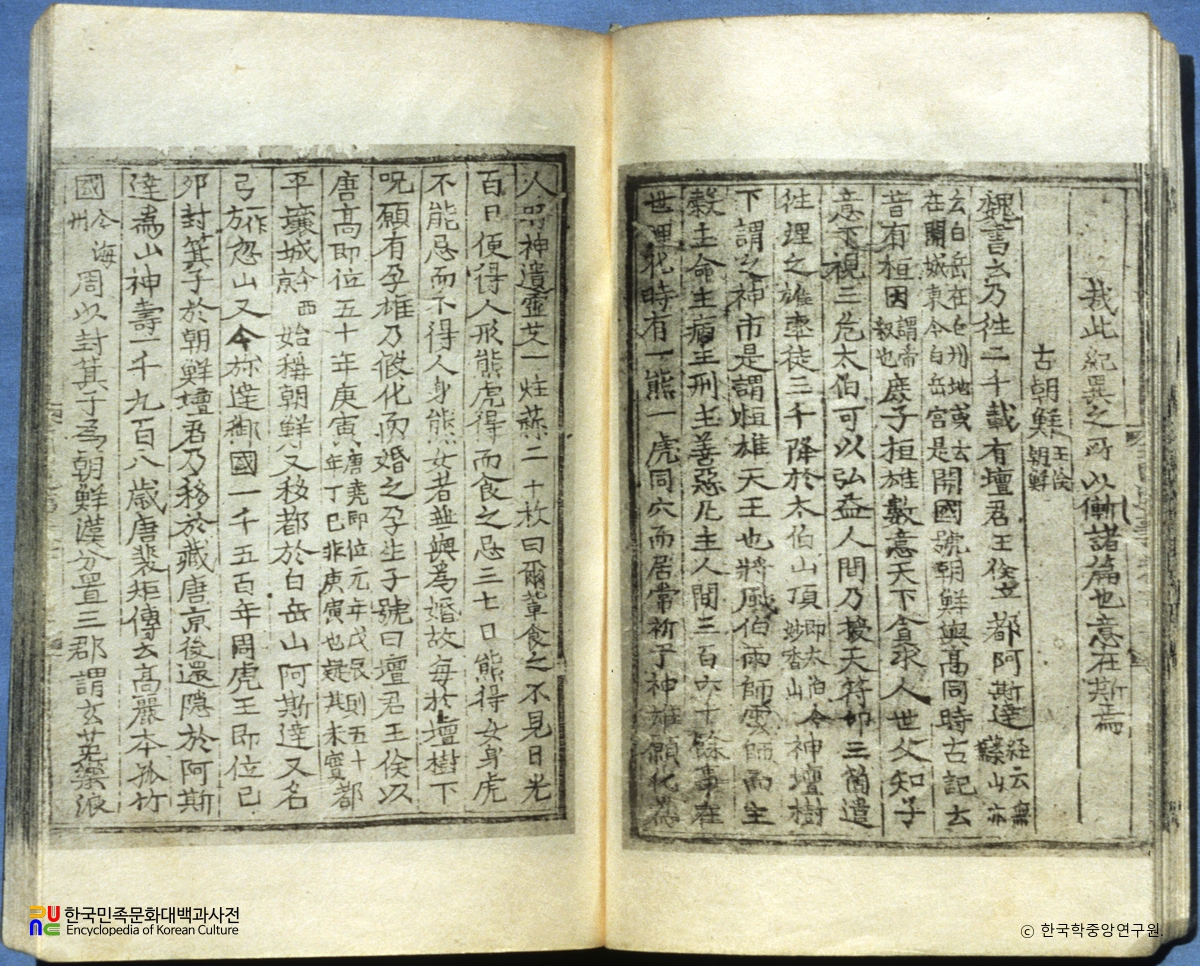 哉此紀異之所以慚諸篇也意在斯焉
古朝鮮王倹朝鮮
魏書云乃徃二千載有壇君王倹立都阿斯達経云無葉山亦
云白岳在白州地或云在開城東今白岳宮是開國號朝鮮與高同時古記云
昔有桓因謂帝釈也庶子桓雄數意天下貪求人世父知子
意下視三危太伯可以弘益人間乃授天符印三箇遣
徃理之雄率徒三千降於太伯山頂即太伯今妙香山神壇樹
下謂之神市是謂桓雄天王也將風伯雨師雲師而主
糓主命主病主刑主善惡凡主人間三百六十餘事在
世理化時有一熊一虎同穴而居常祈于神雄願化為
人時神遺靈艾一炷蒜二十枚曰爾軰食之不見日光
百日便得人形熊虎得而食之忌三七日熊得女身虎
不能忌而不得人身熊女者無與為婚故每於壇樹下
呪願有孕雄乃假化而婚之孕生子號曰壇君王倹以
唐高即位五十年庚寅唐堯即位元年戊辰則五十年丁巳非庚寅也疑其未實都
平壤城今西京始稱朝鮮又移都於白岳山阿斯達又名
弓一作方忽山又今旀達御國一千五百年周虎王即位己
夘封箕子於朝鮮壇君乃移於藏唐京後還隱於阿斯
達為山神壽一千九百八歳唐裴矩傳云高麗本孤竹
國今海州周以封箕子為朝鮮漢分置三郡謂玄菟樂浪
한국민족문화대백과사전
Encyclopedia of Korean Culture
© 한국학중앙연구원